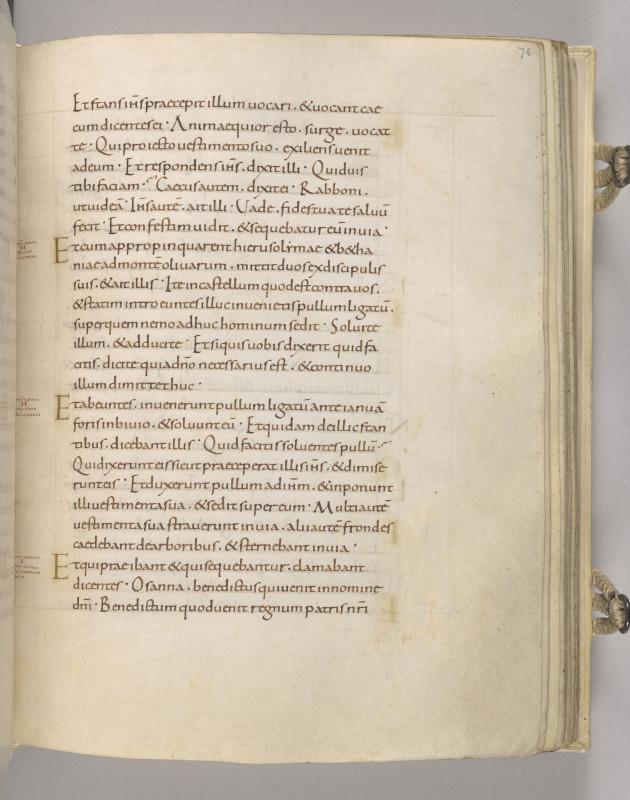 76
Et stans ih̄s praecepit illum uocari . & uocant cae
cum dicentes ei · Animaequior esto . surge . uocat
te · Qui proiecto uestimento suo . exiliens uenit
ad eum · Et respondens ih̄s . dixit illi · Quid uis
tibi faciam · Caecus autem . dixit ei · Rabboni .
ut uideā · Ih̄s autē . ait illi · Uade . fides tua te saluū
fecit · Et confestim uidit . & sequebatur eū in uia ·
Et cum appropinquarent hierusolymae & b&ha
niae ad montē oliuarum . mittit duos ex discipulis
suis . & ait illis · Ite in castellum quod est contra uos .
& statim introeuntes illuc inuenietis pullum ligatū .
super quem nemo adhuc hominum sedit · Soluite
illum . & adducite · Et si quis uobis dixerit quid fa
citis . dicite quia dn̄o necessarius est . & continuo
illum dimittet huc ·
Et abeuntes . inuenerunt pullum ligatū ante ianuā
foris in biuio . & soluunt eū · Et quidam de illic stan
tibus . dicebant illis · Quid facitis soluentes pullū ·
Qui dixerunt eis sicut praeceperat illis ih̄s . & dimise
runt eis · Et duxerunt pullum ad ih̄m . & inponunt
illi uestimenta sua . & sedit super eum · Multi autē
uestimenta sua strauerunt in uia . alii autē frondes
caedebant de arboribus . & sternebant in uia ·
Et qui praeibant & qui sequebantur . clamabant
dicentes · Osanna . benedictus qui uenit in nomine
dn̄i · Benedictum quod uenit regnum patris nr̄i